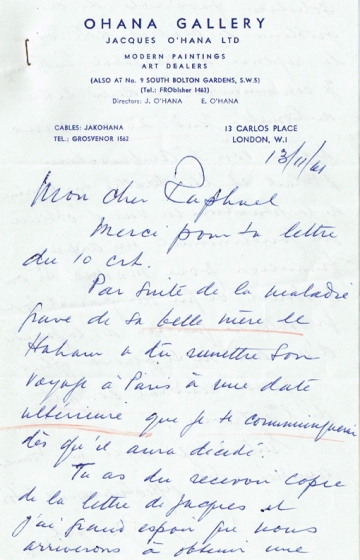 OHANA GALLERY
JACQUES O'HANA LTD
MODERN PAINTINGS
ART DEALERS
(ALSO AT No. 9 SOUTH BOLTON GARDENS, S.W.5)
(Tel.: FRObisher 1463)
Directors: J. O'HANA E. O'HANA
CABLES: JAKOHANA 13 CARLOS PLACE
TEL.: GROSVENOR 1562 LONDON, W.1
13/11/61
Mon cher Raphael
Merci pour ta lettre
du 10 crt.
Par suite de la maladie
grave de sa belle mère le
Haham a dû remettre son
voyage à Paris à une date
ultérieure que je te communiquerai
dès qu'il aura décidé.
Tu as du recevoir copie
de la lettre de Jacques et
j'ai grand espoir que nous
arriverons à obtenir une